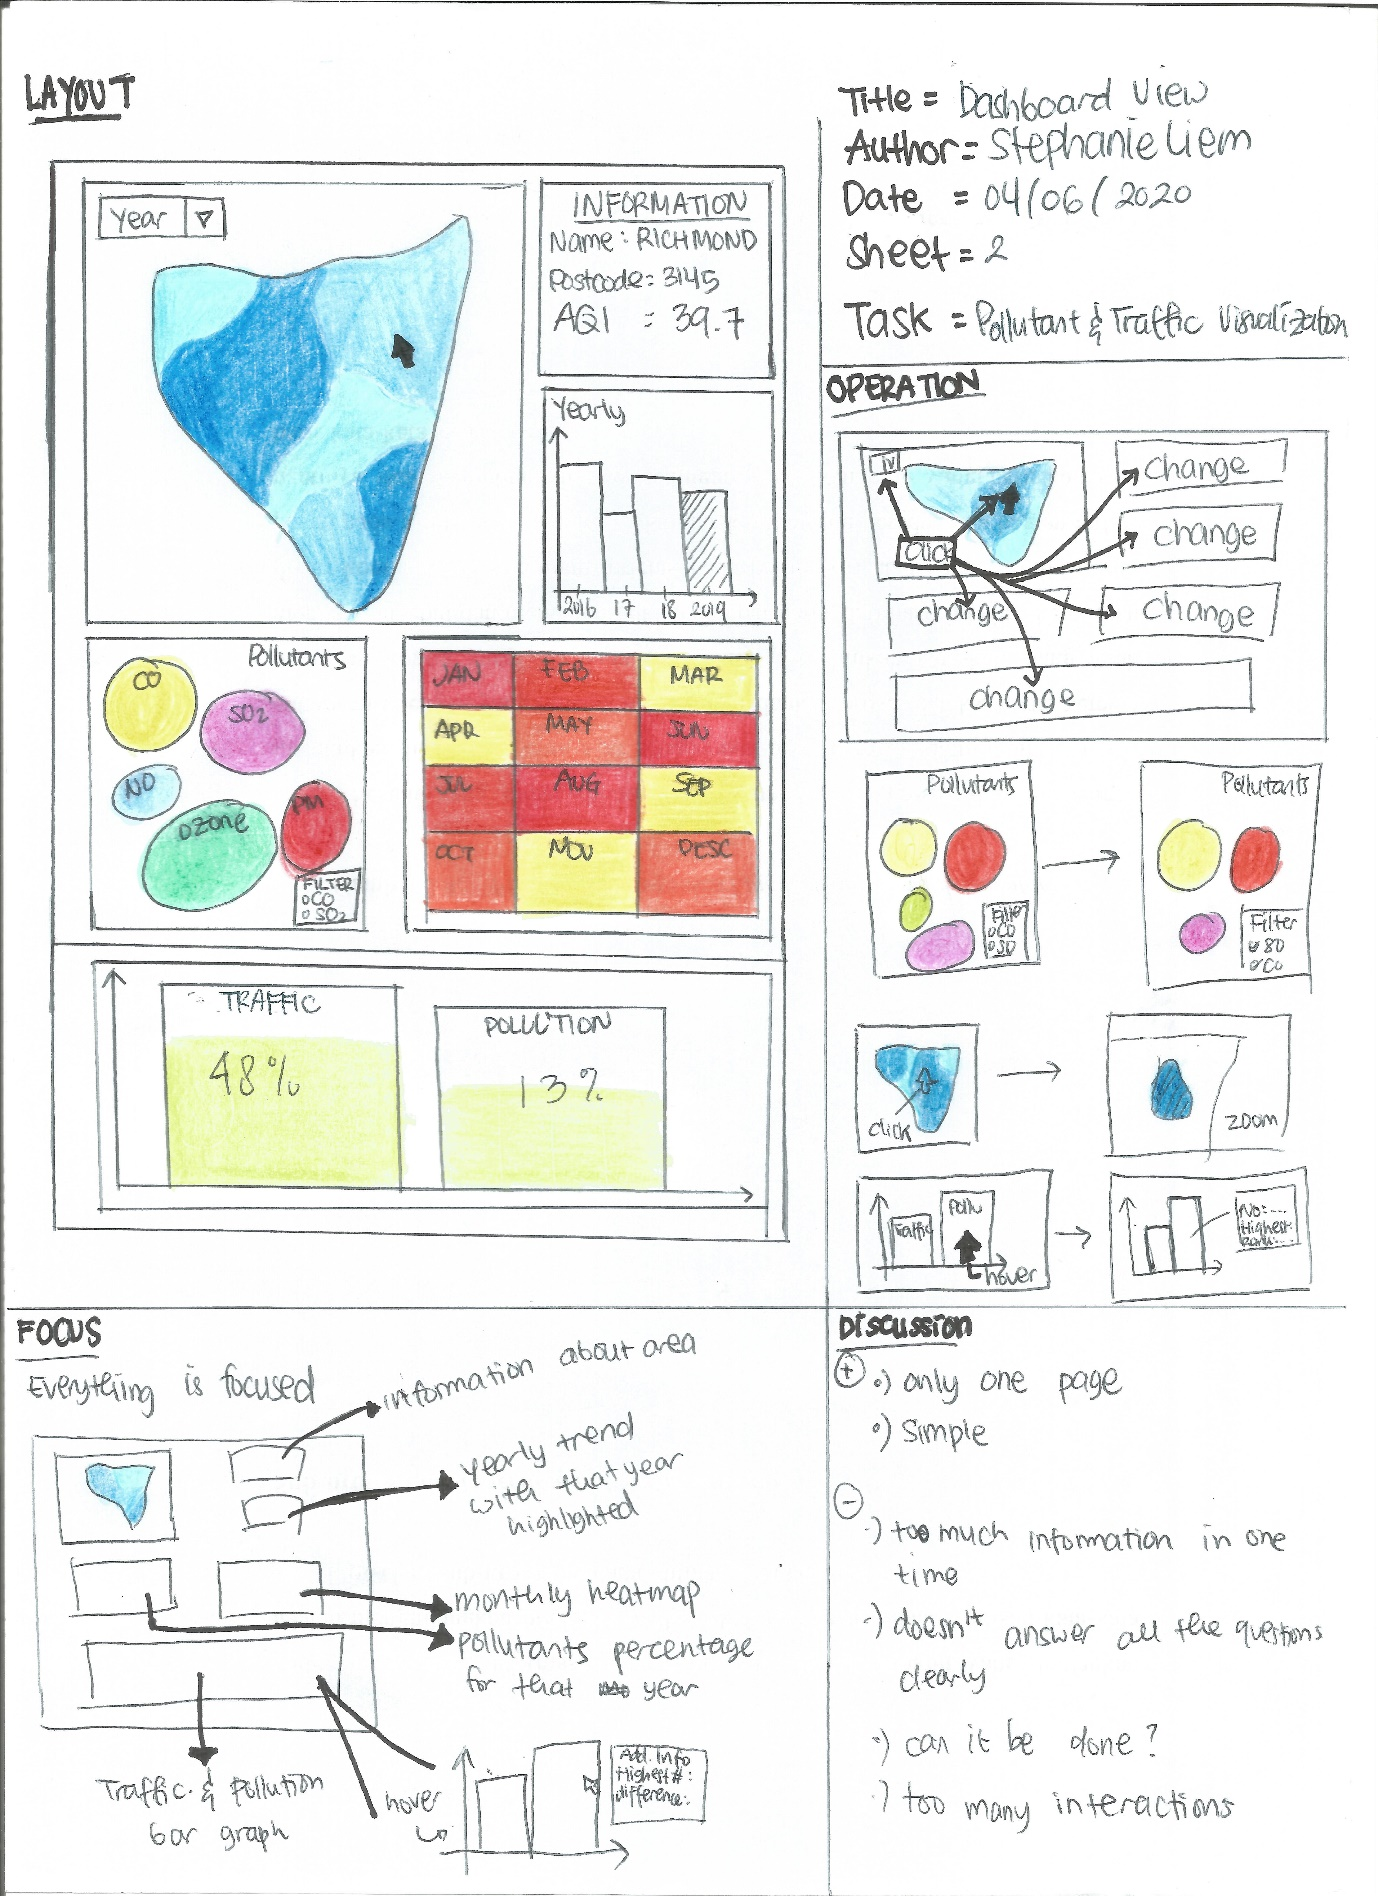 LAYOUT
Year
INFORMATION
Name: RICHMOND
Postcode: 3145
AQI : 39.7
Yearly
2016 17 18 2019
Pollutants
CO
SO2
NO
OZONE
PM
FILTER
CO
SO2
JAN FEB MAR
APR MAY JUN
JUL AUG SEP
OCT NOV DESC
TRAFFIC
48%
POLLUTION
13%
Title = Dashboard View
Author = Stephanie Liem
Date = 04/06/2020
Sheet = 2
Task = Pollutant & Traffic Visualization
OPERATION
click
change
change
change
change
change
Pollutants
Filter
CO
SO
Pollutants
Filter
SO
CO
click
ZOOM
Traffic
Pollu
hover
No: ...
Highest:
Rank: ...
FOCUS
Everything is focused
information about area
yearly trend
with that year
highlighted
monthly heatmap
pollutants percentage
for that year
Traffic & Pollution
bar graph
hover
Add. Info
Highest #:
difference:
Discussion
+
·) only one page
·) Simple
-
·) too much information in one
time
·) doesn't answer all the questions
clearly
·) can it be done?
·) too many interactions